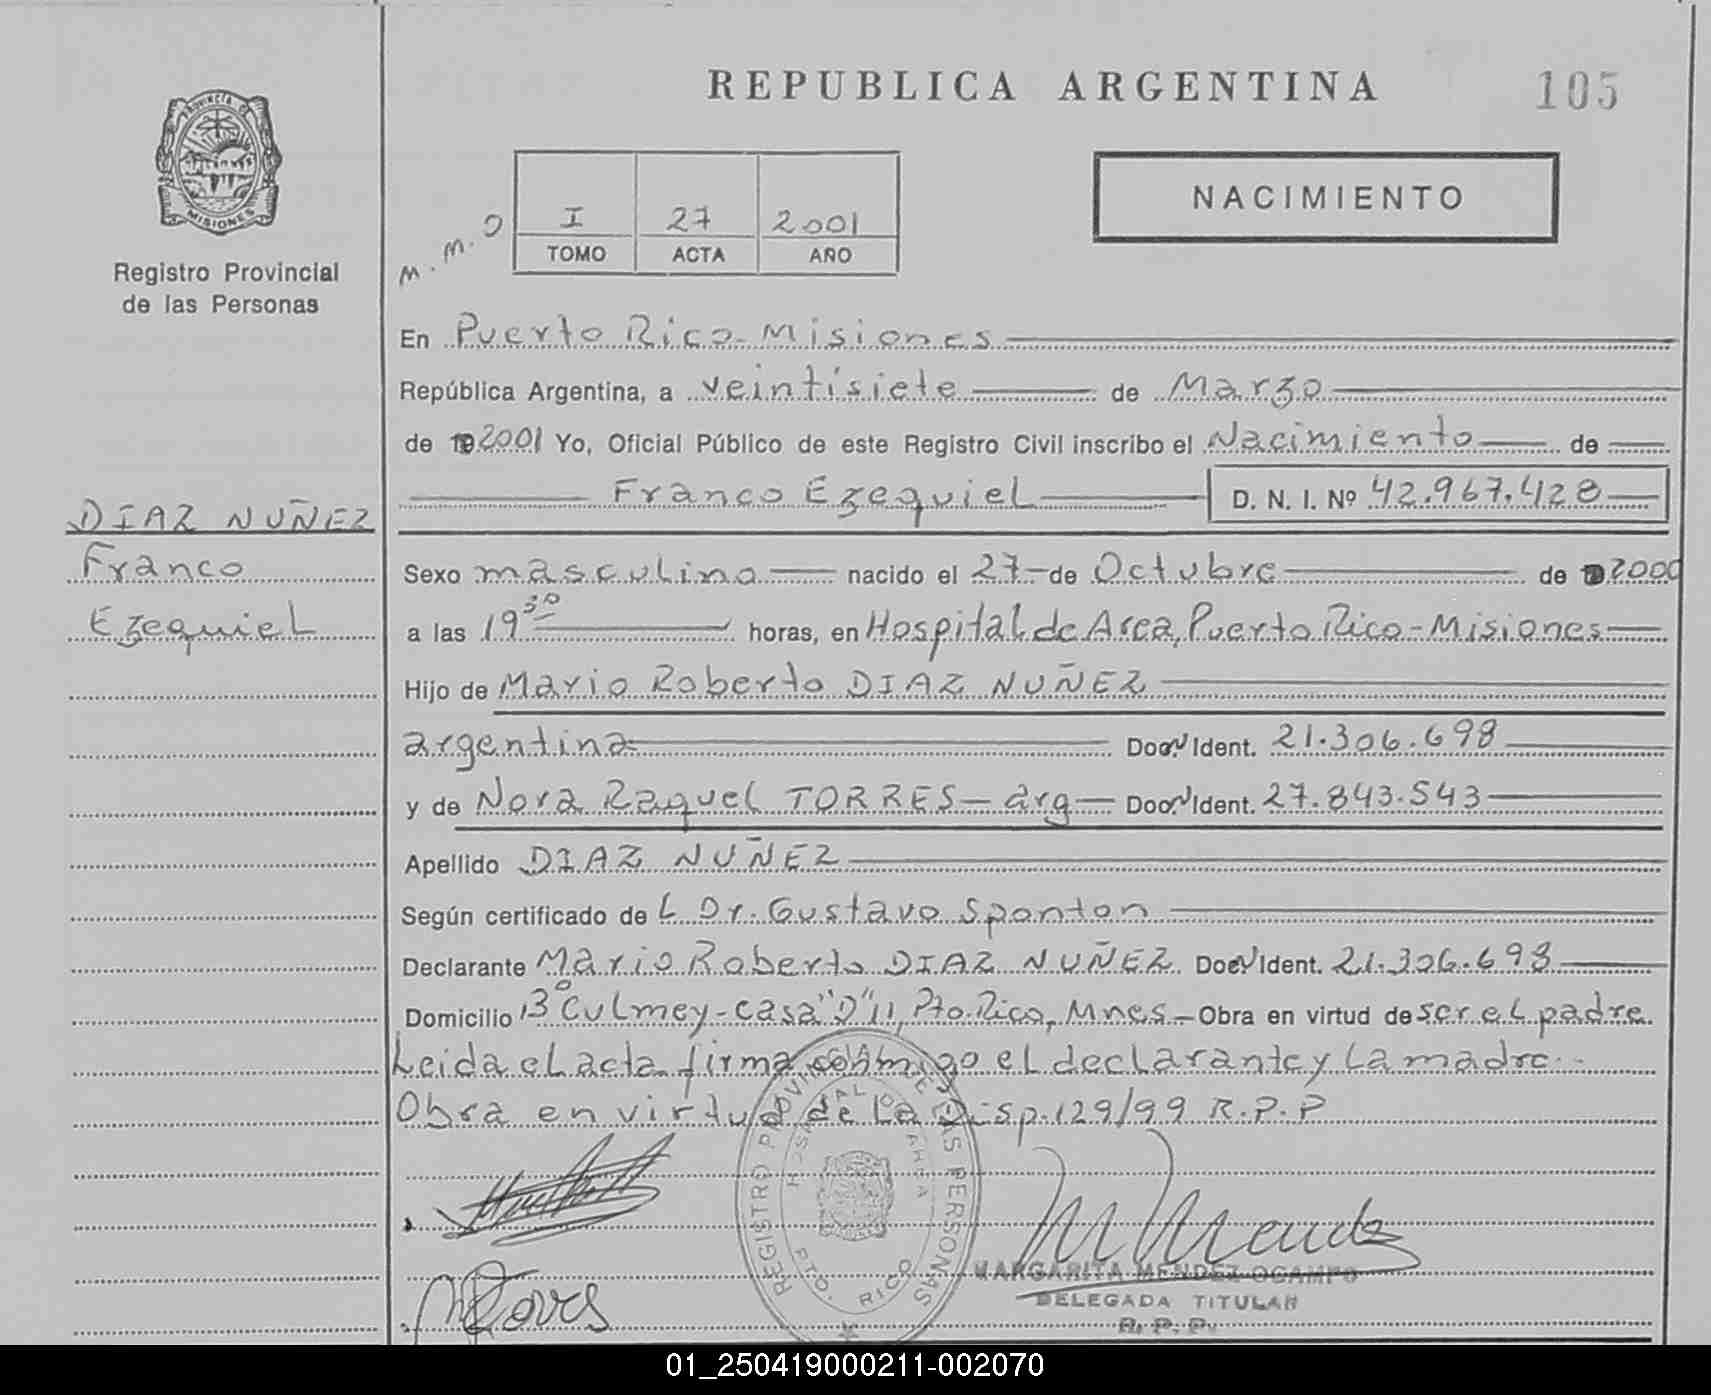 REPUBLICA ARGENTINA
105
PROVINCIA DE
MISIONES
Registro Provincial
de las Personas
NACIMIENTO
M.M.O
I 27 2001
TOMO ACTA AÑO
En Puerto Rico-Misiones
República Argentina, a veintisiete de Marzo
de 2001 Yo, Oficial Público de este Registro Civil inscribo el Nacimiento de
Franco Ezequiel D. N. I. Nº 42.967.428
DIAZ NUÑEZ
Franco
Ezequiel
Sexo masculino nacido el 27 de Octubre de 2000
a las 19 30 horas, en Hospital de Area, Puerto Rico-Misiones
Hijo de Mario Roberto DIAZ NUÑEZ
argentina Ident. 21.306.698
y de Nora Raquel TORRES - arg - Ident. 27.843.543
Apellido DIAZ NUÑEZ
Según certificado de L Dr. Gustavo Sponton
Declarante Mario Roberto DIAZ NUÑEZ Ident. 21.306.698
Domicilio Bº Culmey-casa "D" 11, Pto. Rico, Mnes - Obra en virtud de ser el padre.
Leida el acta firma conmigo el declarante y la madre.-
Obra en virtud de la Disp. 129/99 R.P.P
REGISTRO PROVINCIAL DE LAS PERSONAS
HOSPITAL DE AREA
PTO. RICO
M Mendez
MARGARITA MENDEZ OCAMPO
DELEGADA TITULAR
R. P. P.
NTorres
01_250419000211-002070